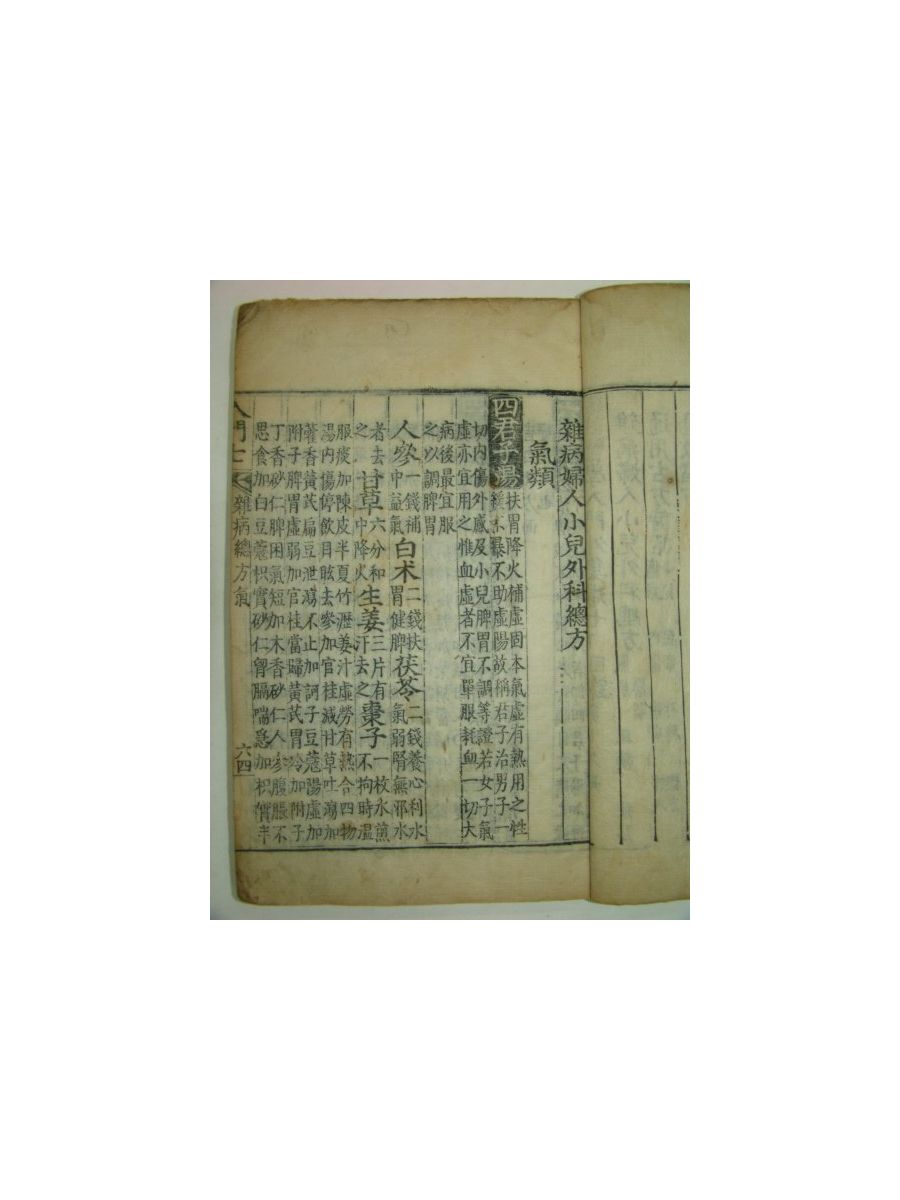 雜病婦人小兒外科總方
氣類
四君子湯扶胃降火補虛固本氣虛有熱用之性
緩不暴不助虛陽故稱君子治男子一
切內傷外感及小兒脾胃不調等證若女子氣
虛亦宜用之惟血虛者不宜單服耗血一切大
病後最宜服
之以調脾胃
人參一錢補中益氣白术二錢扶胃健脾茯苓二錢養心利水氣弱腎無邪水
者去之甘草六分和中降火生姜三片有汗去之棗子一枚水煎不拘時温
服痰加陳皮半夏竹瀝姜汁虛勞有熱合四物
湯內傷停飲目眩去參加官桂減甘草吐瀉加
藿香黃芪扁豆泄瀉不止加訶子豆蔻陽虛加
附子脾胃虛弱加官桂當歸黃芪胃冷加附子
丁香砂仁脾困氣短加木香砂仁人參腹脹不
思食加白豆蔻枳實砂仁胷膈喘急加枳實半
入門七 雜病總方氣 六四